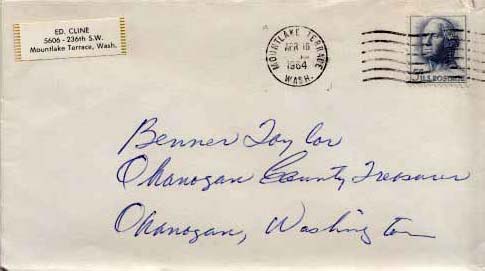 ED. CLINE
5606 - 236th S.W.
Mountlake Terrace, Wash.
MOUNTLAKE TERRACE
APR 10
1964
WASH.
5¢ U.S. POSTAGE
Benner Taylor
Okanogan County Treasurer
Okanogan, Washington